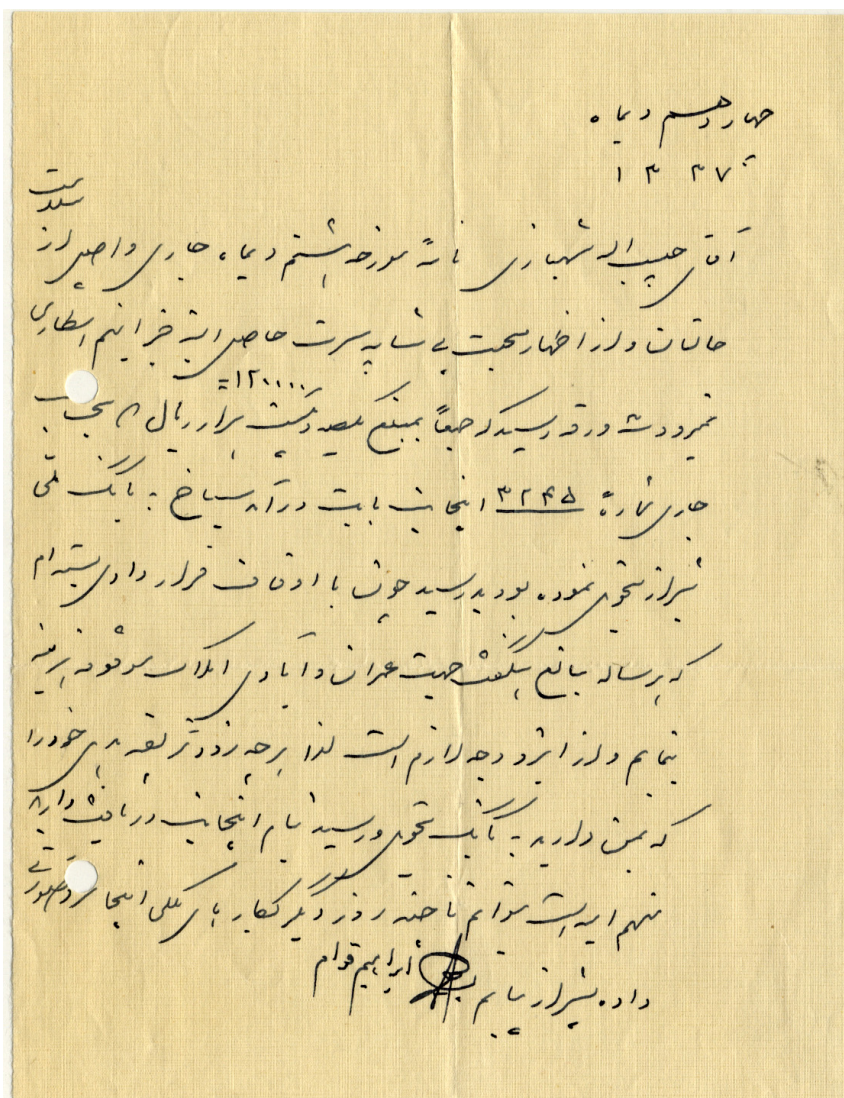 چهاردهم دیماه
۱۳۳۷
آقای حبیب اله شهبازی نامهٔ مورخه هشتم دیماه جاری واصل از سلامت
حالتان و از اظهار محبت بی شائبه مسرت حاصل البته خبر اینهم استطاری
نمیرود ورقه رسید که جمعاً بمبلغ یکصد و بیست هزار ریال ۱۲۰۰۰۰= بحساب
جاری شمارهٔ ۳۲۴۵ اینجانب بابت درآمد سیاخ به بانک ملی
شیراز تحویل نموده بودید رسید چون با اوقاف قرارداد بسته‌ام
که هر ساله مبالغ هنگفت جهت عمران و آبادی املاک موقوفه هزینه
بنمایم و از اینرو وجه لازم است لذا هر چه زودتر بقیه بدهی خود را
که بمن دارید به بانک تحویل و رسید بنام اینجانب دریافت دارید
منهم امید است بتوانم تا چند روز دیگر بکار های ملکی اینجا سر و صورتی
داده بشیراز بیایم ابراهیم قوام